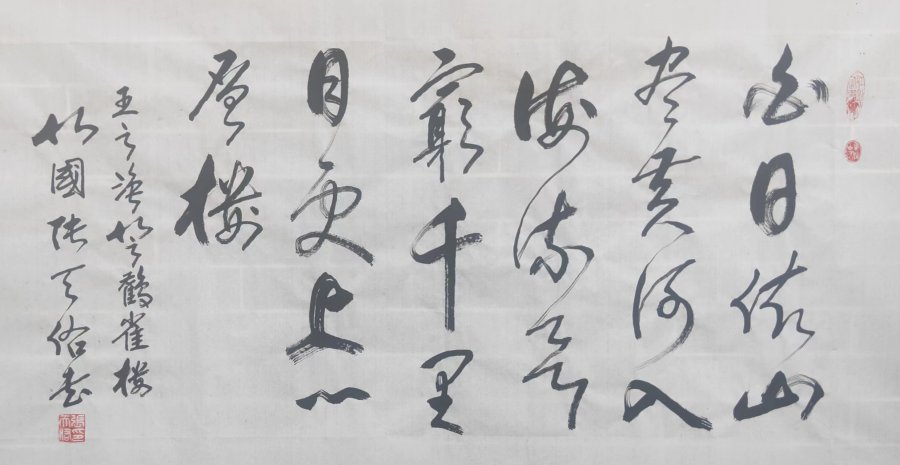 白日依山
尽黄河入
海流欲
窮千里
目更上一
层楼
王之涣之鹳雀楼
國張天书